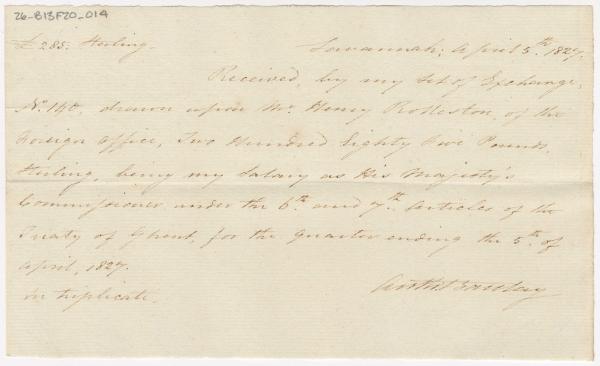 26-B13F20_014
£285: Sterling. Savannah; April 5th. 1827.
Received, by my Set of Exchange,
No. 140, drawn upon Mr. Henry Rolleston, of the
Foreign Office, Two Hundred Eighty Five Pounds,
Sterling, being my Salary as His Majesty's
Commissioner under the 6th. and 7th. Articles of the
Treaty of Ghent, for the quarter ending the 5th. of
April, 1827.
In triplicate.
Anth. Barclay